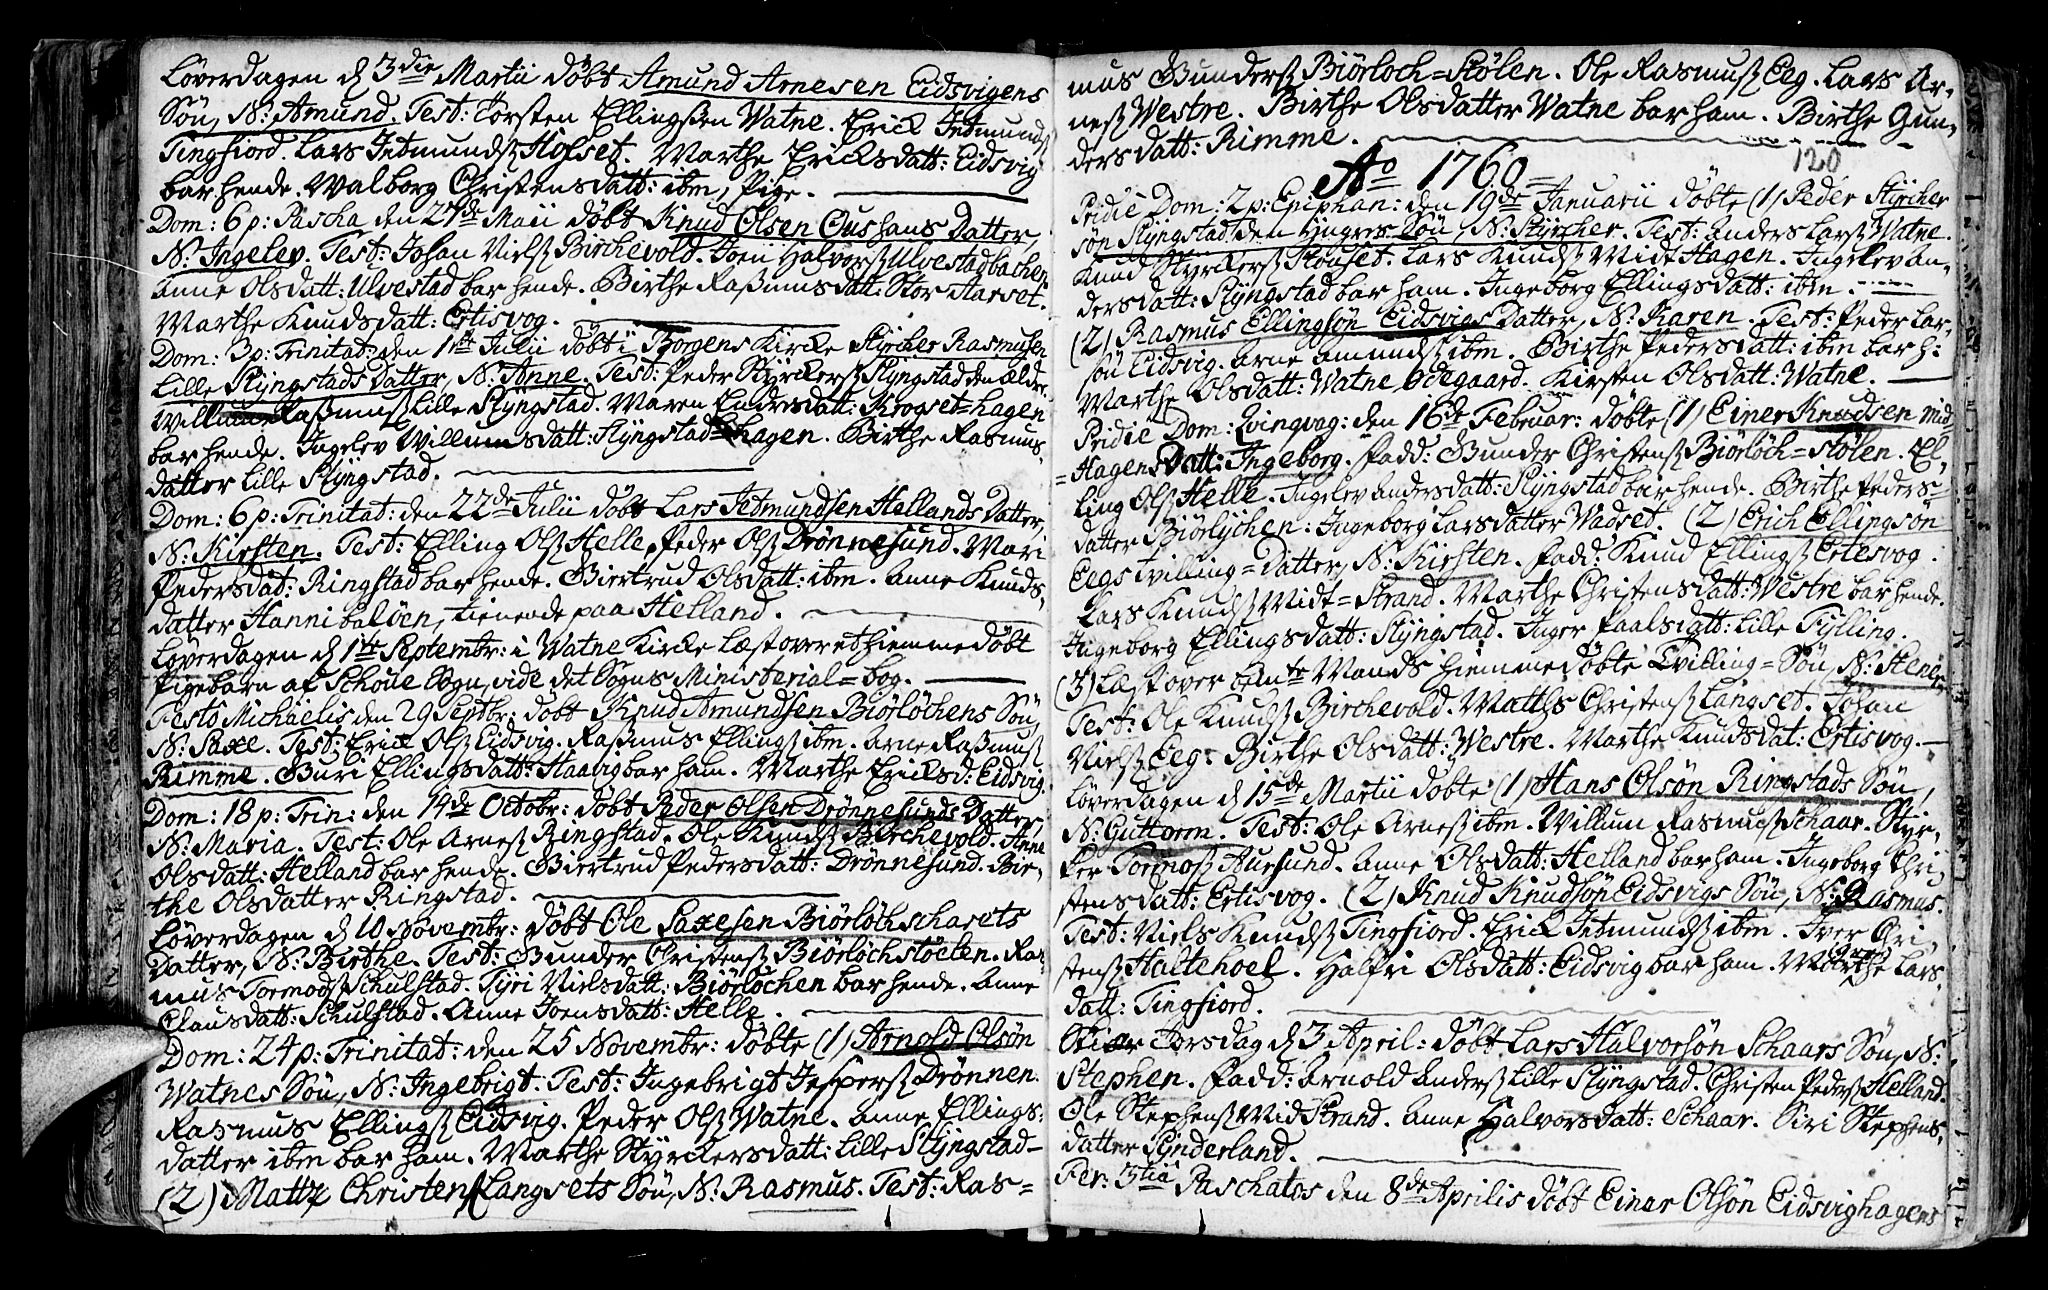 Løverdagen d 3die Martii døbt Amund Arnesen Eidsvigens
Søn, N: Amund. Test: Torsten Ellingssen Watne. Erick Jetmunds
Tingfiord. Lars Jetmunds Hofset. Marthe Ericksdatt: Eidsvig
bar hende. Walborg Christensdatt: ibm, Pige.
Dom: 6 p: Pascha, den 27de Maii døbt Knud Olsen Ous hans Datter,
N: Ingelev. Test: Johan Niels Birchevold. Joen Halvors Ulvestadbachen
Anne Olsdatt: Ulvestad bar hende. Birthe Rasmusdatt: Stor Aarset.
Marthe Knudsdatt: Ertisvog.
Dom: 3 p: Trinitat: den 1ste Julii døbt i Borgens Kircke Styrcker Rasmusen
Lille Slyngstads Datter, N: Anne. Test: Peder Styrckers Slyngstad den ælder.
Willum Rasmus Lille Slyngstad. Maren Endresdatt: Krogset=hagen
bar hende. Ingelev Willumsdatt: Slyngstad=hagen. Birthe Rasmus-
datter Lille Slyngstad.
Dom: 6 p: Trinitat: den 22de Julii døbt Lars Jetmundsen Hellands Datter,
N: Kirsten. Test: Elling Ols Helle, Peder Ols Drønnesund. Mari
Pedersdat: Ringstad bar hende. Giertrud Olsdatt: ibm. Anne Knuds-
datter Hannibaløen, tienende paa Helland.
Løverdagen d 1ste Septembr: i Watne Kircke læst over et hiemmedøbt
Pigebarn af Schoue Sogn, vide det Sogns Ministerial=bog.
Festo Michaelis den 29 Septbr: døbt Knud Amundsen Biørløchens Søn,
N: Saxe. Test: Erick Ols Eidsvig. Rasmus Ellings ibm. Arne Rasmus
Rimme. Guri Ellingsdatt: Haavig bar ham. Marthe Ericksd: Eidsvig.
Dom: 18 p: Trin: den 14de Octobr: døbt Peder Olsen Drønnesunds Datter,
N: Maria. Test: Ole Arnes Ringstad. Ole Knuds Birchevold. Anne
Olsdatt: Helland bar hende. Giertrud Pedersdatt: Drønnesund. Bir-
the Olsdatter Ringstad.
Løverdagen d 10 Novembr: døbt Ole Saxesen Biørløchscharets
Datter, N: Birthe. Test: Gunder Christens Biørløchstøelen. Ras-
mus Tormods Schulstad. Tyri Nielsdatt: Biørløchen bar hende. Anne
Clausdatt: Schulstad. Anne Joensdatt: Helle.
Dom: 24 p: Trinitat: den 25 Novembr: døbte (1) Arnold Olsøn
Watnes Søn, N: Ingebrigt. Test: Ingebrigt Jespers Drønnen.
Rasmus Ellings Eidsvig. Peder Ols Watne. Anne Ellings-
datter ibm bar ham. Marthe Styrckersdatt: Lille Slyngstad-
(2) Mattz Christens Langsets Søn, N: Rasmus. Test: Ras=
mus Gunders Biørloch=Stølen. Ole Rasmus Eeg. Lars Ar-
nes Westre. Birthe Olsdatter Watne bar ham. Birthe Gun-
dersdatt: Rimme.
120
Ao 1760
Pridie Dom: 2 p: Epiphan: den 19de Januarii døbte (1) Peder Styrcher
søn Slyngstad den yngres Søn, N: Styrcher. Test: Anders Lars Watne.
Knud Styrckers Slouset. Lars Knuds Midt Hagen. Ingelev An-
dersdatt: Slyngstad bar ham. Ingeborg Ellingsdatt: ibm.
(2) Rasmus Ellingsøn Eidsvigs Datter, N: Karen. Test: Peder Lar-
søn Eidsvig. Arne Amunds ibm. Birthe Pedersdatt: ibm bar h:
Marthe Olsdatt: Watne Ødegaard. Kirsten Olsdatt: Watne.
Pridie Dom: Qvinqvag: den 16de Februar: døbte (1) Einer Knudsen Mid
=Hagens Datt: Ingeborg. Fadd: Gunder Christens Biørløch=Stølen. El-
ling Ols Helle. Ingelev Andersdatt: Slyngstad bar hende. Birthe Peders-
datter Biørlychen: Ingeborg Larsdatter Vadset. (2) Erich Ellingsøn
Eegs Tvilling=Datter, N: Kirsten. Fadd: Knud Ellings Ertesvog.
Lars Knuds Midt=Strand. Marthe Christensdatt: Westre bar hende.
Ingeborg Ellingsdatt: Slyngstad. Inger Paalsdatt: Lille Fylling.
(3) Læst over samme Mands hiemmedøbte Tvilling=Søn, N:
Test: Ole Knuds Birchevold. Matths Christens Langset. Johan
Niels Eeg. Birthe Olsdatt: Westre. Marthe Knudsdat: Ertisvog.
Løverdagen d 15de Martii døbte (1) Hans Olsøn Ringstads Søn,
N: Guttorm. Test: Ole Arnes ibm. Willum Rasmus Schaar. Styr-
ker Tormos Auesund. Anne Olsdatt: Helland bar ham. Ingeborg Chri-
stensdatt: Ertisvog. (2) Knud Knudsøn Eidsvigs Søn, N: Rasmus.
Test: Niels Knuds Tingfiord. Erick Jetmunds ibm. Iver Chri-
stens Haltehoel. Halfri Olsdatt: Eidsvig bar ham. Marthe Lars-
datt: Tingfiord.
Skiær Torsdag d 3 April: døbt Lars Halvorsøn Schaars Søn, N:
Stephen. Fadd: Arnold Anders Lille Slyngstad. Christen Peders Helland.
Ole Stephens Mid Strand. Anne Halvorsdatt: Schaar. Siri Stephens-
datter Synderland.
Fer: 3tia Paschatos den 8de Aprilis døbt Einar Olsøn Eidsvighagens